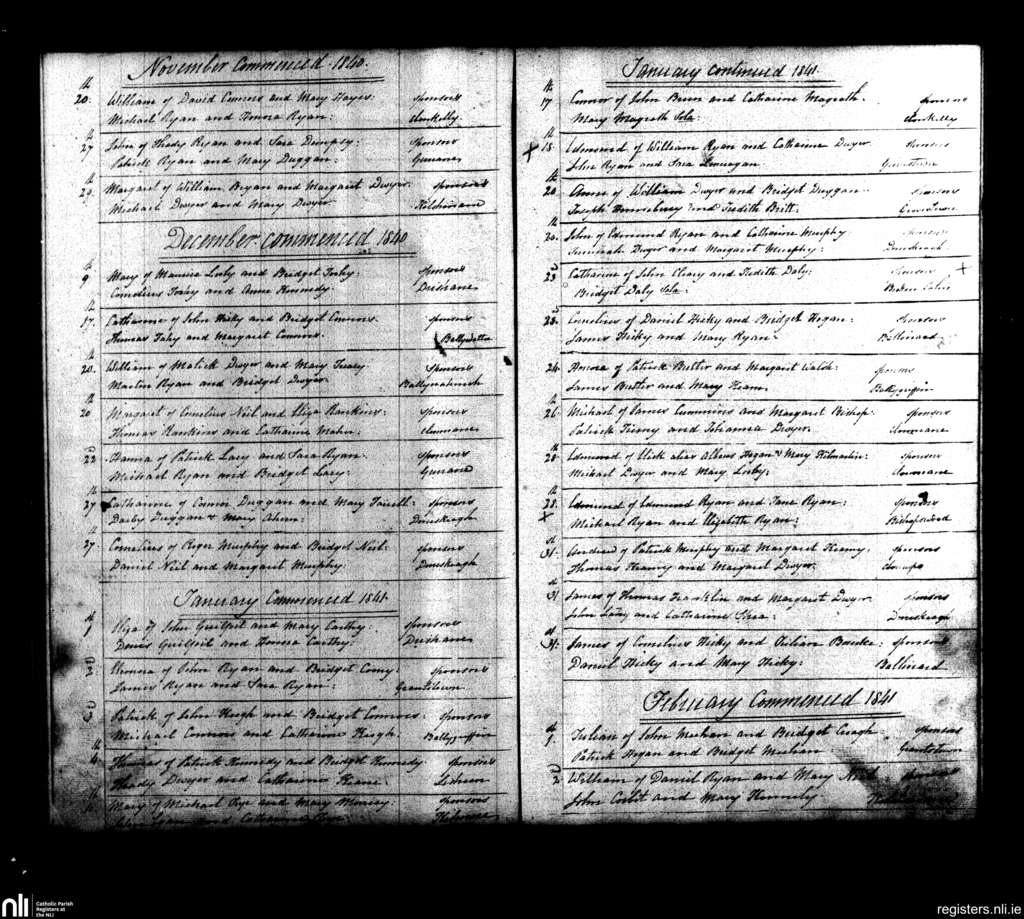 November Commenced 1840.
20th William of David Connors and Mary Hayes: sponsors
Michael Ryan and Honora Ryan: Clonkelly
27th John of Thady Ryan and Sara Dempsy: sponsors
Patrick Ryan and Mary Duggan:
29th Margaret of William Bryan and Margaret Dwyer sponsors
Michael Dwyer and Mary Dwyer
December commenced 1840
9th Mary of Maurice Looby and Bridget Foohy: sponsors
Cornelius Foohy and Anne Kennedy:
17th Catharine of John Hicky and Bridget Connors. sponsors
Thomas Fahy and Margaret Connors.
20th William of Malick Dwyer and Mary sponsors
Martin Ryan and Bridget Dwyer
20 Margaret of Cornelius Neil and Eliza Rankins: sponsors
Thomas Rankins and Catharine Clonmane
22d Hanna of Patrick Lacy and Sara Ryan. sponsors
Michael Ryan and Bridget Lacy:
27th Catharine of Connor Duggan and Mary Farrell: sponsors
Darby Duggan & Mary Ahern: Donaskeagh
27. Cornelius of Roger Murphy and Bridget Neil: sponsors
Daniel Neil and Margaret Murphy. Donaskeagh
January Commenced 1841.
1st Eliza of John Guilfoil and Mary Carthy: sponsors
Denis Guilfoil and Honora Carthy:
2d Honora of John Ryan and Bridget sponsors
James Ryan and Sara Ryan: Grantstown
3d Patrick of John Keogh and Bridget Connors: sponsors
Michael Connors and Catharine Keogh. Ballygriffin
4th Thomas of Patrick Kennedy and Bridget Kennedy sponsors
Thady Dwyer and Catharine Keane: Lisheen
Mary of Michael and Mary sponsors
and Catharine
January continued 1841
17th Connor of John Brien and Catharine Magrath. sponsors
Mary Magrath Sola: Clonkelly
18th Edmond of William Ryan and Catharine Dwyer sponsors
John Ryan and Sara
20th Anne of William Dwyer and Bridget Duggan sponsors
Joseph and Judith Britt:
20th John of Edmond Ryan and Catharine Murphy sponsors
Jeremiah Dwyer and Margaret Murphy: Donaskeagh
23d Catharine of John Cleary and Judith Daly: sponsors
Bridget Daly Sola:
23d Cornelius of Daniel Hicky and Bridget Hogan: sponsors
James Hicky and Mary Ryan: Ballinard
24 Honora of Patrick Butler and Margaret Walsh: sponsors
James Butler and Mary Ballygriffin
26th Michael of James Cummins and Margaret Bishop: sponsors
Patrick and Dwyer. Clonmane
28th Edmond of Ulick alias Hogan & Mary sponsors
Michael Dwyer and Mary Looby: Clonmane
28th Edmond of Edmond Ryan and Jane Ryan: sponsors
Michael Ryan and Elizabeth Ryan: Bishopswood
31st Andrew of Patrick Murphy and Margaret Kearny: sponsors
Thomas Kearny and Margaret Dwyer.
31st James of Thomas Franklin and Margaret Dwyer sponsors
John and Catharine Donaskeagh
31st James of Cornelius Hicky and Julian Bourke: sponsors
Daniel Hicky and Mary Hicky: Ballinard
February Commenced 1841
1st Julian of John Meehan and Bridget Creagh. sponsors
Patrick Hogan and Bridget Meehan: Grantstown
2d William of Daniel Ryan and Mary Neil sponsors
John Corbit and Mary
nli
Catholic Parish
Registers at
the NLI
registers.nli.ie